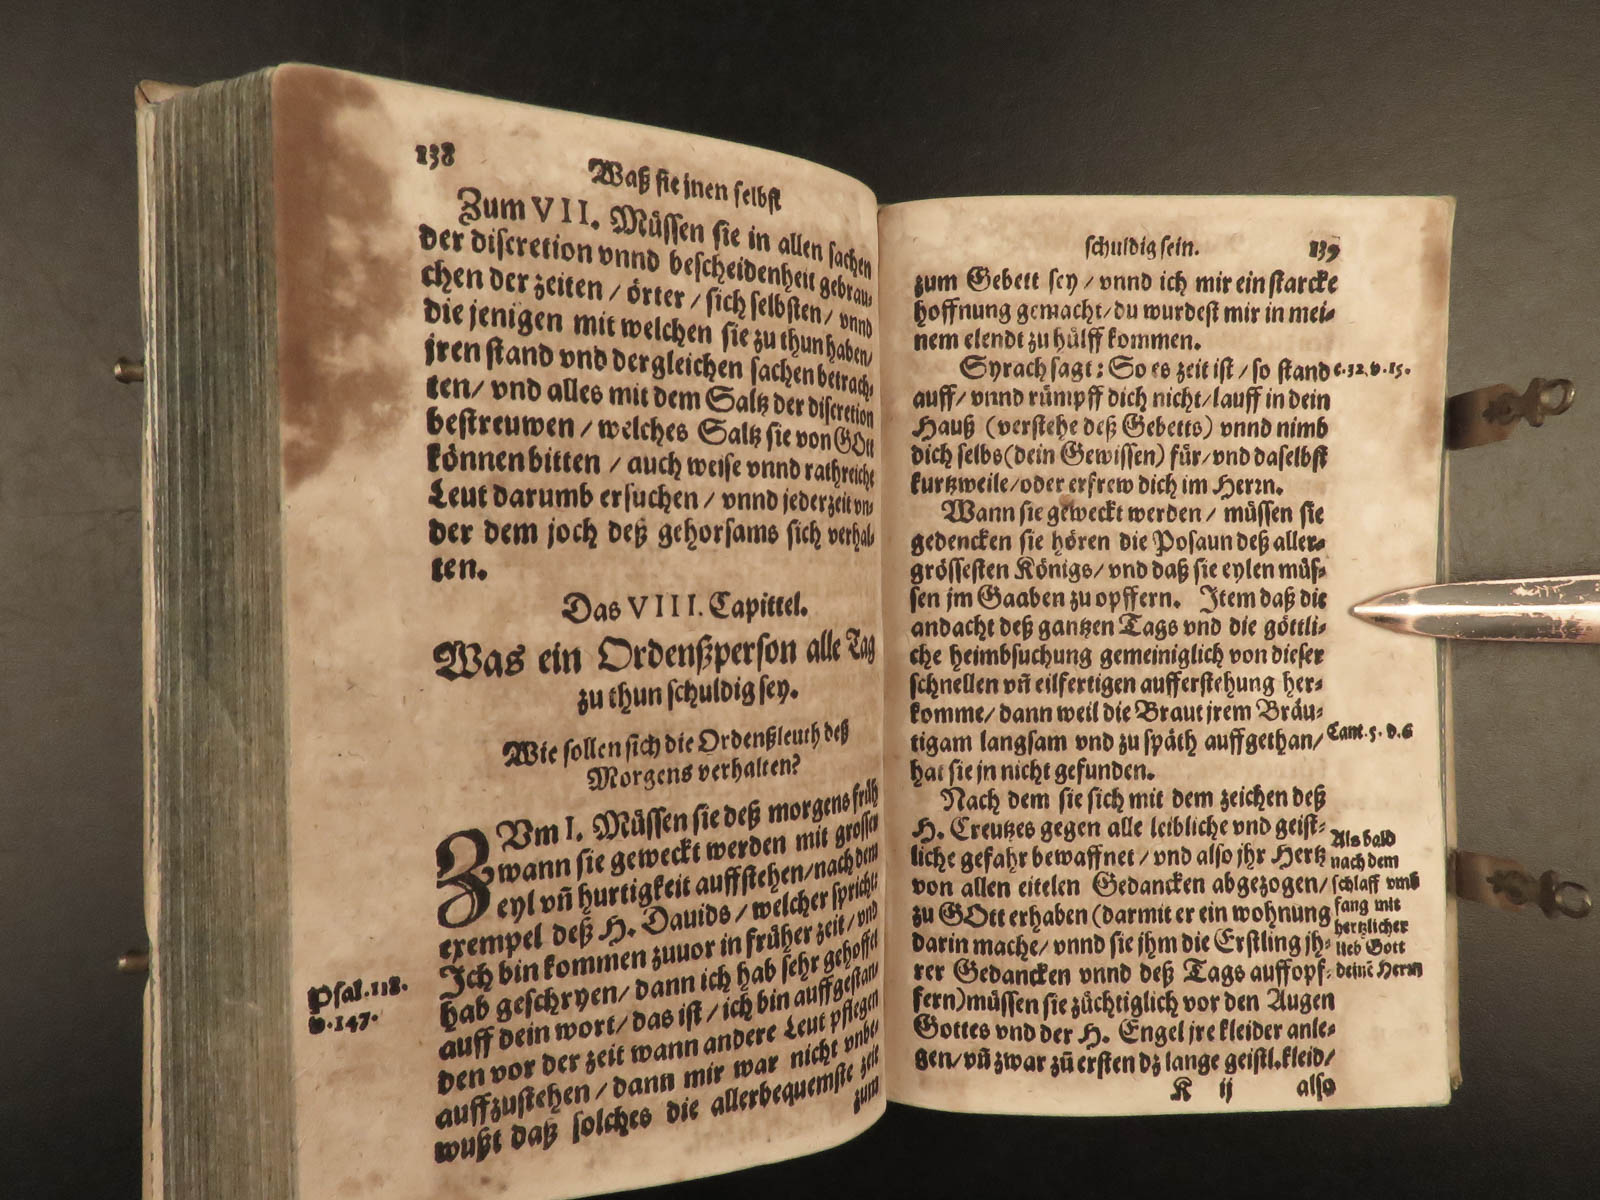 138
Waß sie jnen selbst
Zum VII. Müssen sie in allen sachen
der discretion vnnd bescheidenheit gebrau-
chen der zeiten / örter / sich selbsten / vnnd
die jenigen mit welchen sie zu thun haben/
jren stand vnd dergleichen sachen betrach-
ten/ vnd alles mit dem Saltz der discretion
bestreuwen / welches Saltz sie von GOtt
können bitten / auch weise vnnd rathreiche
Leut darumb ersuchen / vnnd jederzeit vn-
der dem joch deß gehorsams sich verhal-
ten.
Das VIII. Capittel.
Was ein Ordenßperson alle Tag
zu thun schuldig sey.
Wie sollen sich die Ordenßleuth deß
Morgens verhalten?
ZVm I. Müssen sie deß morgens früh
wann sie geweckt werden mit grossen
eyl vñ hurtigkeit auffstehen/ nach dem
exempel deß H. Dauids / welcher spricht:
Ich bin kommen zuuor in früher zeit / vnd
hab geschryen/ dann ich hab sehr gehoffet
auff dein wort/ das ist / ich bin auffgestan-
den vor der zeit wann andere Leut pflegen
auffzustehen / dann mir war nicht vnbe-
wußt daß solches die allerbequemste zeit
zum
Psal.118.
v.147.
schuldig sein. 139
zum Gebett sey / vnnd ich mir ein starcke
hoffnung gemacht/ du wurdest mir in mei-
nem elendt zu hülff kommen.
Syrach sagt: So es zeit ist / so stand
auff/ vnnd rümpff dich nicht/ lauff in dein
Hauß (verstehe deß Gebetts) vnnd nimb
dich selbs (dein Gewissen) für/ vnd daselbst
kurtzweile/ oder erfrew dich im Herrn.
Wann sie geweckt werden / müssen sie
gedencken sie hören die Posaun deß aller-
grössesten Königs/ vnd daß sie eylen müs-
sen jm Gaaben zu opffern. Item daß die
andacht deß gantzen Tags vnd die göttli-
che heimbsuchung gemeiniglich von dieser
schnellen vñ eilfertigen aufferstehung her-
komme/ dann weil die Braut jrem Bräu-
tigam langsam vnd zu späth auffgethan/
hat sie jn nicht gefunden.
Nach dem sie sich mit dem zeichen deß
H. Creutzes gegen alle leibliche vnd geist-
liche gefahr bewaffnet / vnd also jhr Hertz
von allen eitelen Gedancken abgezogen/
zu GOtt erhaben (darmit er ein wohnung
darin mache/ vnnd sie jhm die Erstling jh-
rer Gedancken vnnd deß Tags auffopf-
fern) müssen sie züchtiglich vor den Augen
Gottes vnd der H. Engel jre kleider anle-
gen/ vñ zwar zũ ersten dz lange geistl. kleid/
K ij also
c.32. v.15.
Cant.5. v.6
Als bald
nach dem
schlaff vmb
fang mit
hertzlicher
lieb Gott
deinẽ Herrn